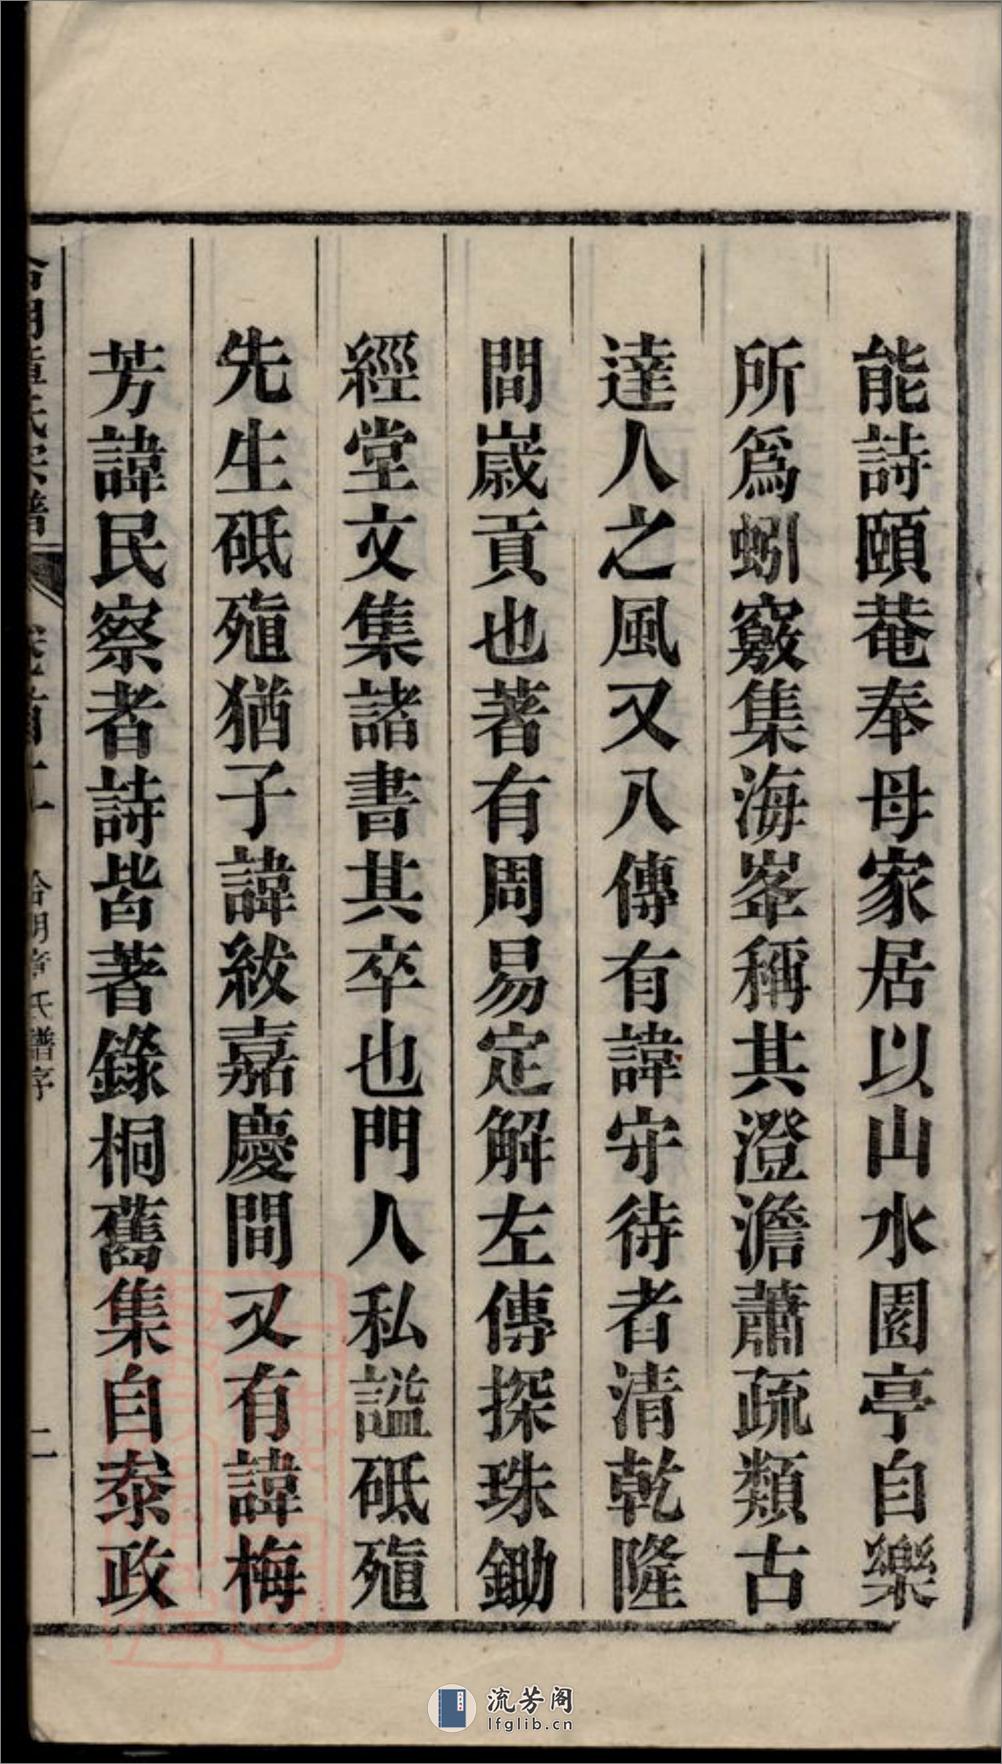 能詩頤菴奉母家居以山水園亭自樂
所爲蚓竅集海峯稱其澄澹蕭疏類古
達人之風又八傳有諱守待者清乾隆
間歲貢也著有周易定解左傳探珠鋤
經堂文集諸書其卒也門人私謚砥殖
先生砥殖猶子諱紱嘉慶間又有諱梅
芳諱民察者詩皆著錄桐舊集自泰政
二
流芳阁
lfglib.cn